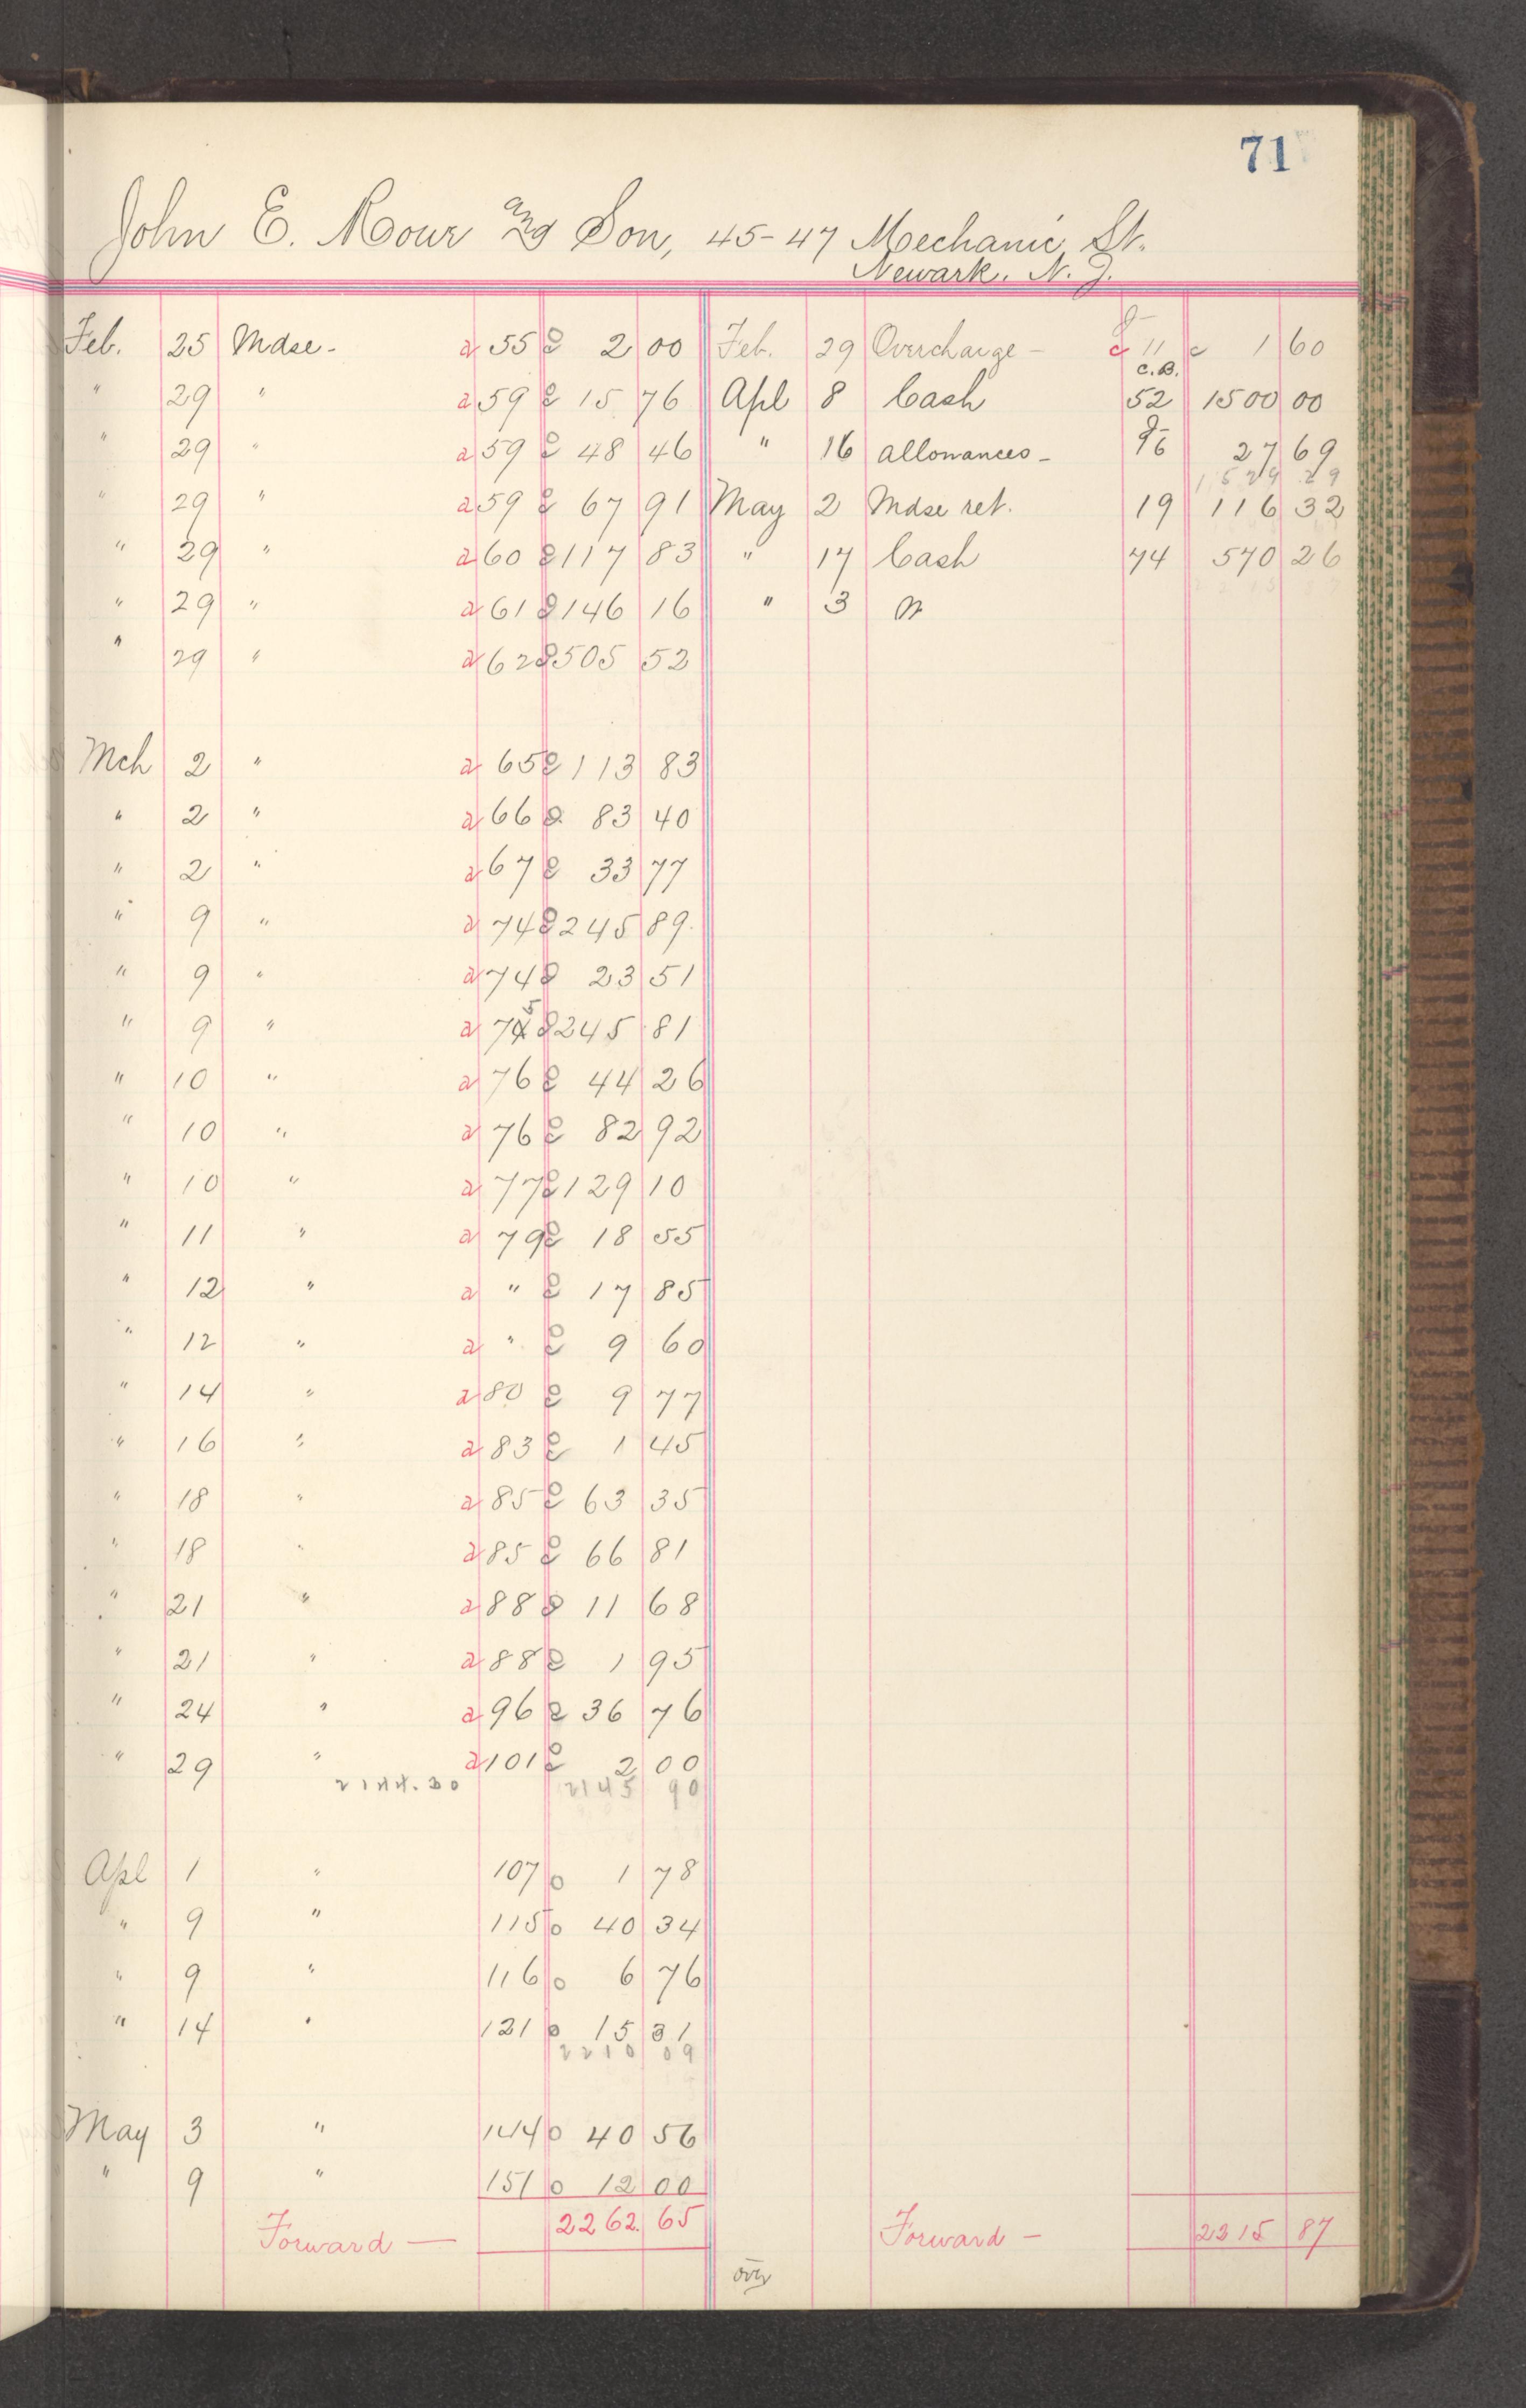 71
John E. Mour and Son, 45-47 Mechanic St.
Newark. N. J.
Feb. 25 Mdse - a 55 2 00 Feb. 29 Overcharge - c 11 c 1 60
" 29 " a 59 15 76 Apl 8 Cash C.B. 52 1500 00
" 29 " a 59 48 46 " 16 allowances - 16 27 69
1529 29
" 29 " a 59 67 91 May 2 Mdse ret. 19 116 32
" 29 " a 60 117 83 " 17 Cash 74 570 26
" 29 " a 61 146 16 " 3
" 29 " a 62 505 52
Mch 2 " a 65 113 83
" 2 " a 66 83 40
" 2 " a 67 33 77
" 9 " a 74 245 89
" 9 " a 74 23 51
" 9 " a 75 245 81
" 10 " a 76 44 26
" 10 " a 76 82 92
" 10 " a 77 129 10
" 11 " a 79 18 55
" 12 " a " 17 85
" 12 " a " 9 60
" 14 " a 80 9 77
" 16 " a 83 1 45
" 18 " a 85 63 35
" 18 " a 85 66 81
" 21 " a 88 11 68
" 21 " a 88 1 95
" 24 " a 96 36 76
" 29 " a 101 2 00
2144.30 2145 90
Apl 1 " 107 o 1 78
" 9 " 115 o 40 34
" 9 " 116 o 6 76
" 14 " 121 o 15 31
2210 09
May 3 " 144 o 40 56
" 9 " 151 o 12 00
Forward — 2262. 65 Forward — 2215 87
over